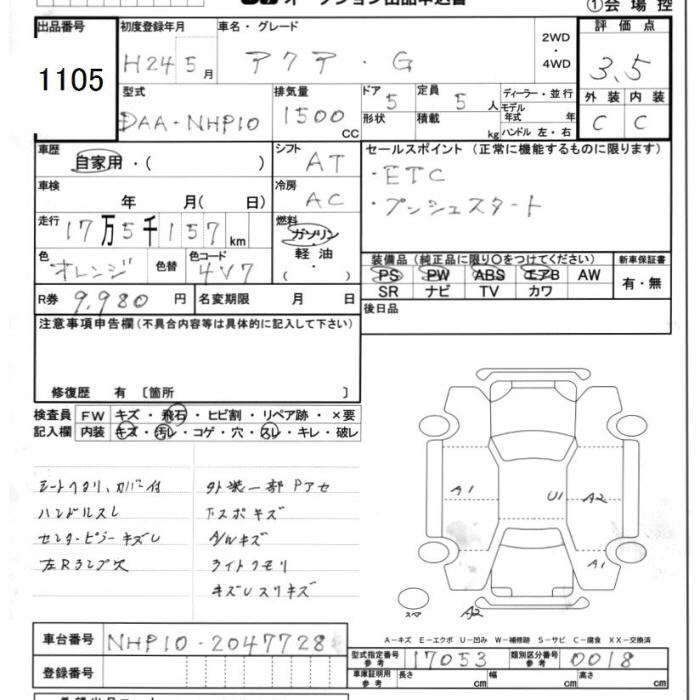 オークション出品申込書
①会場控
出品番号 1105
初度登録年月 H24 5月
車名・グレード アクア・G
2WD・4WD
評価点 3.5
外装 C 内装 C
型式 DAA-NHP10
排気量 1500 cc
ドア 5 形状
定員 5 人 積載 kg
ディーラー・並行
モデル年式 年
ハンドル 左・右
車歴 自家用・( )
シフト AT
セールスポイント (正常に機能するものに限ります)
・ETC
・プッシュスタート
車検 年 月( 日)
冷房 AC
走行 17万5千157km
燃料 ガソリン・軽油・( )
色 オレンジ 色替 色コード 4V7
装備品 (純正品に限り○をつけてください) 新車保証書
PS PW ABS エアB AW 有・無
SR ナビ TV カワ
R券 9,980 円 名変期限 月 日
後日品
注意事項申告欄 (不具合内容等は具体的に記入して下さい)
修復歴 有 〔箇所 〕
検査員記入欄 FW キズ・飛石・ヒビ割・リペア跡・×要
内装 キズ・汚レ・コゲ・穴・スレ・キレ・破レ
シートヘタリ、カバー付
ハンドルスレ
センターピラーキズレ
外装一部Pアセ
下スポキズ
A/Wキズ
ライトクモリ
キズUスリキズ
A1 U1 A2
A1
スペア A2
A-キズ E-エクボ U-凹み W-補修跡 S-サビ C-腐食 XX-交換済
車台番号 NHP10-2047728
型式指定番号 参考 17053 類別区分番号 参考 0018
登録番号
車庫証明用 参考 長さ cm 幅 cm 高さ cm